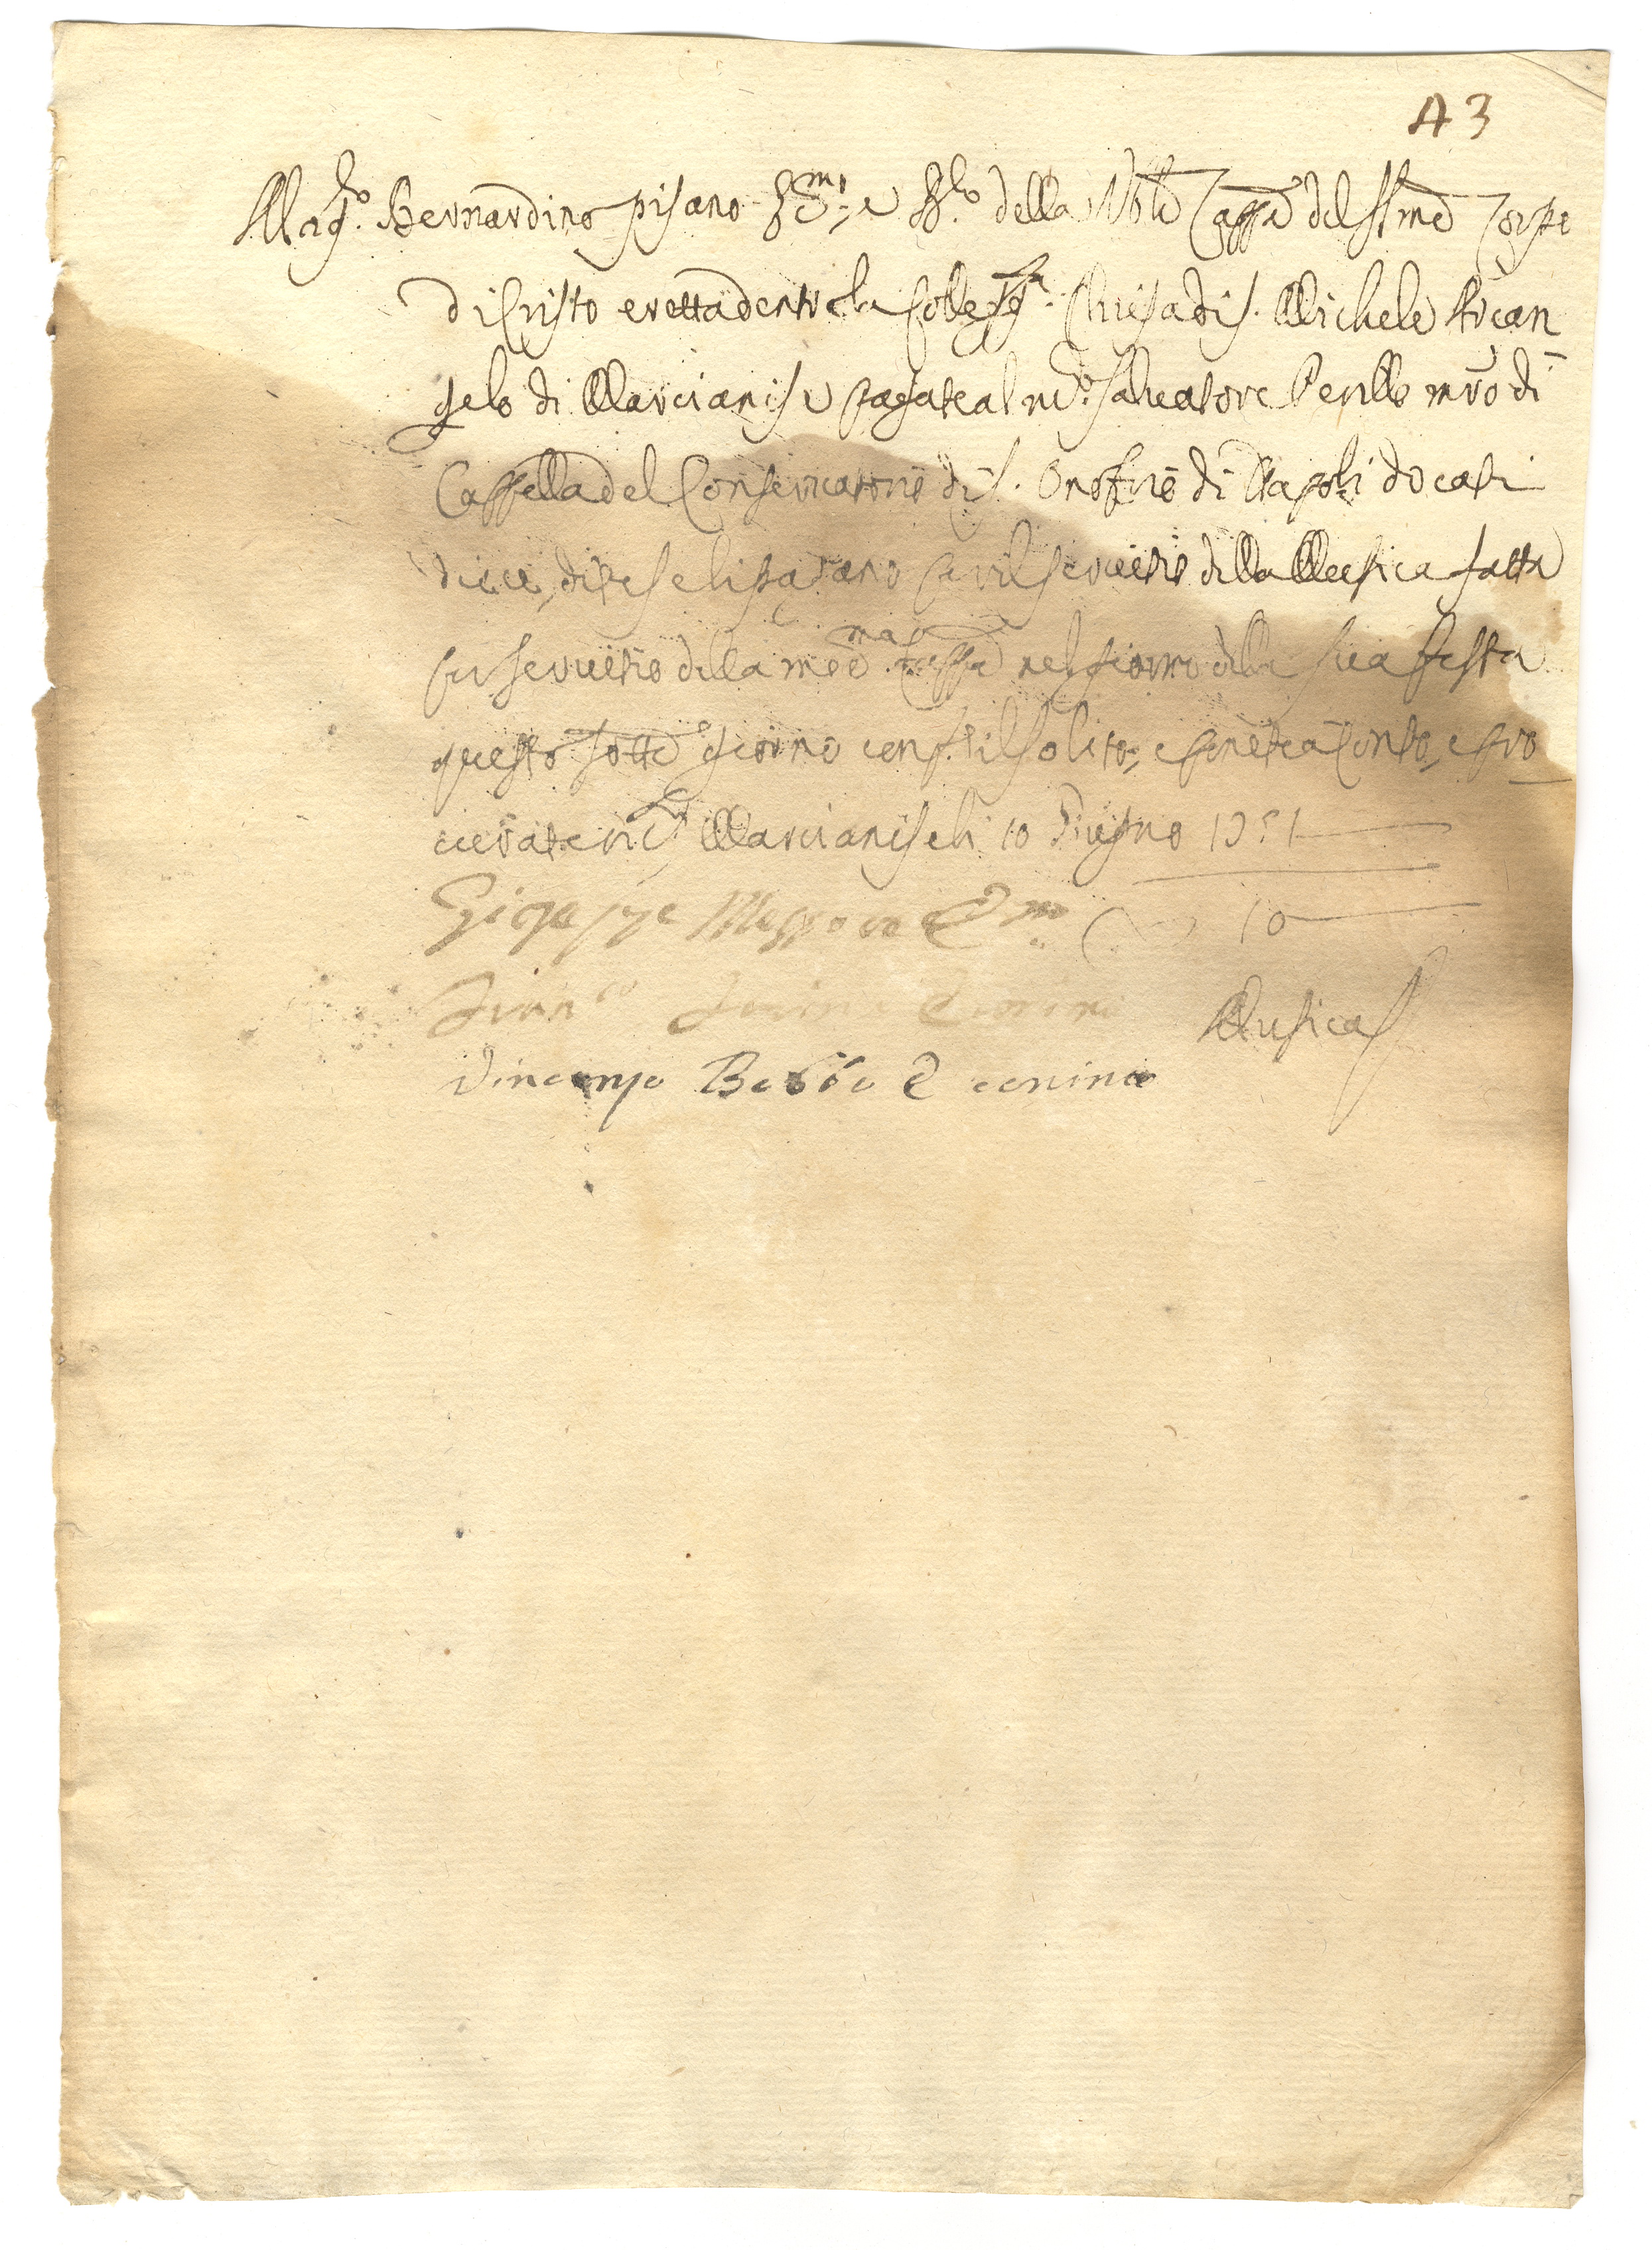 43
Mag.co Bernardino pisano della Ve Capp.a del SS.mo Corpo
di Cristo eretta dentro la Colleg.ta Chiesa di S. Michele Arcan
gelo di Marcianise pagate al m.co Salvatore Perillo mro di
Cappella del Conservatorio di S. Onofrio di Napoli docati
diece, dite seli pagano per il servitio della Musica fatta
per servitio della mede.ma Capp.a nel giorno della sua festa
questo sotto giorno conf.e il solito, e ponete a conto, e pro
Marcianise li 10 Giugno 1751
Giuseppe 10
Fran.co Musica
Vincenzo